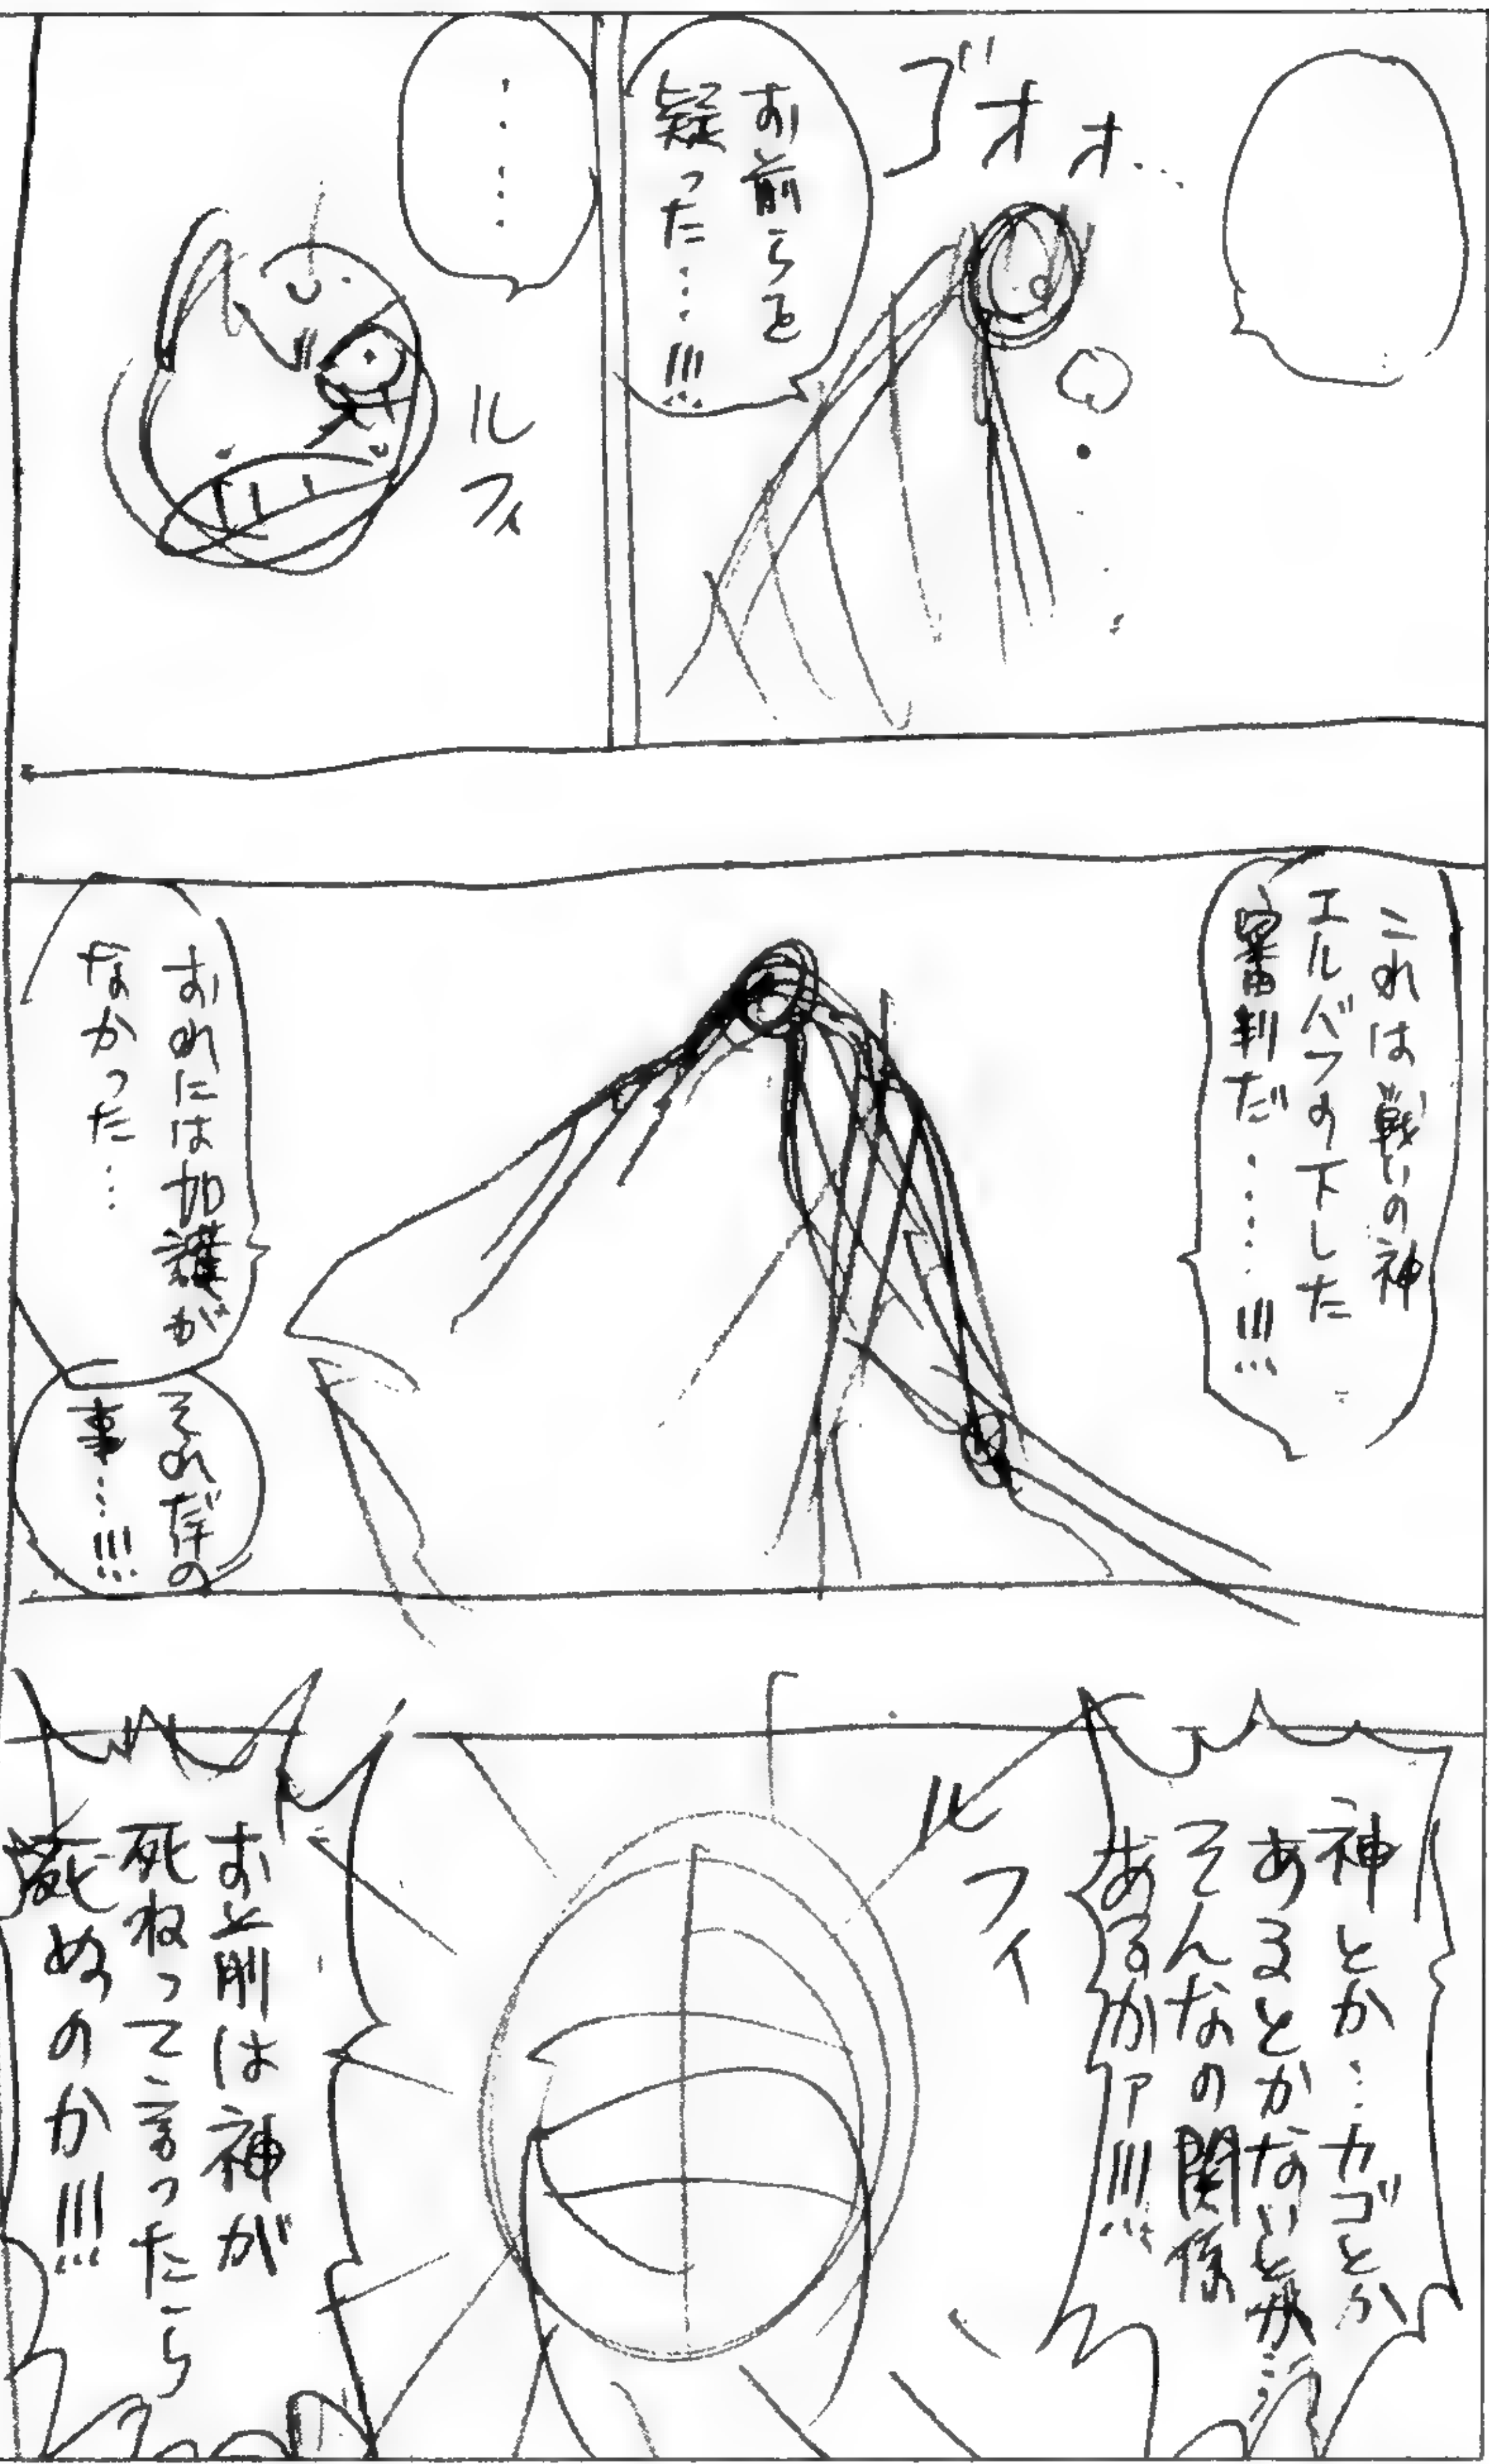 ゴオオ…
お前らを
疑った…!!!
……
ルフィ
これは戦いの神
エルバフの下した
審判だ……!!!
おれには加護が
なかった…
それだけの
事…!!!
神とか…カゴとか
あるとかないとか…
そんなの関係
あるかァ!!!
ルフィ
お前は神が
死ねって言ったら
死ぬのか!!!